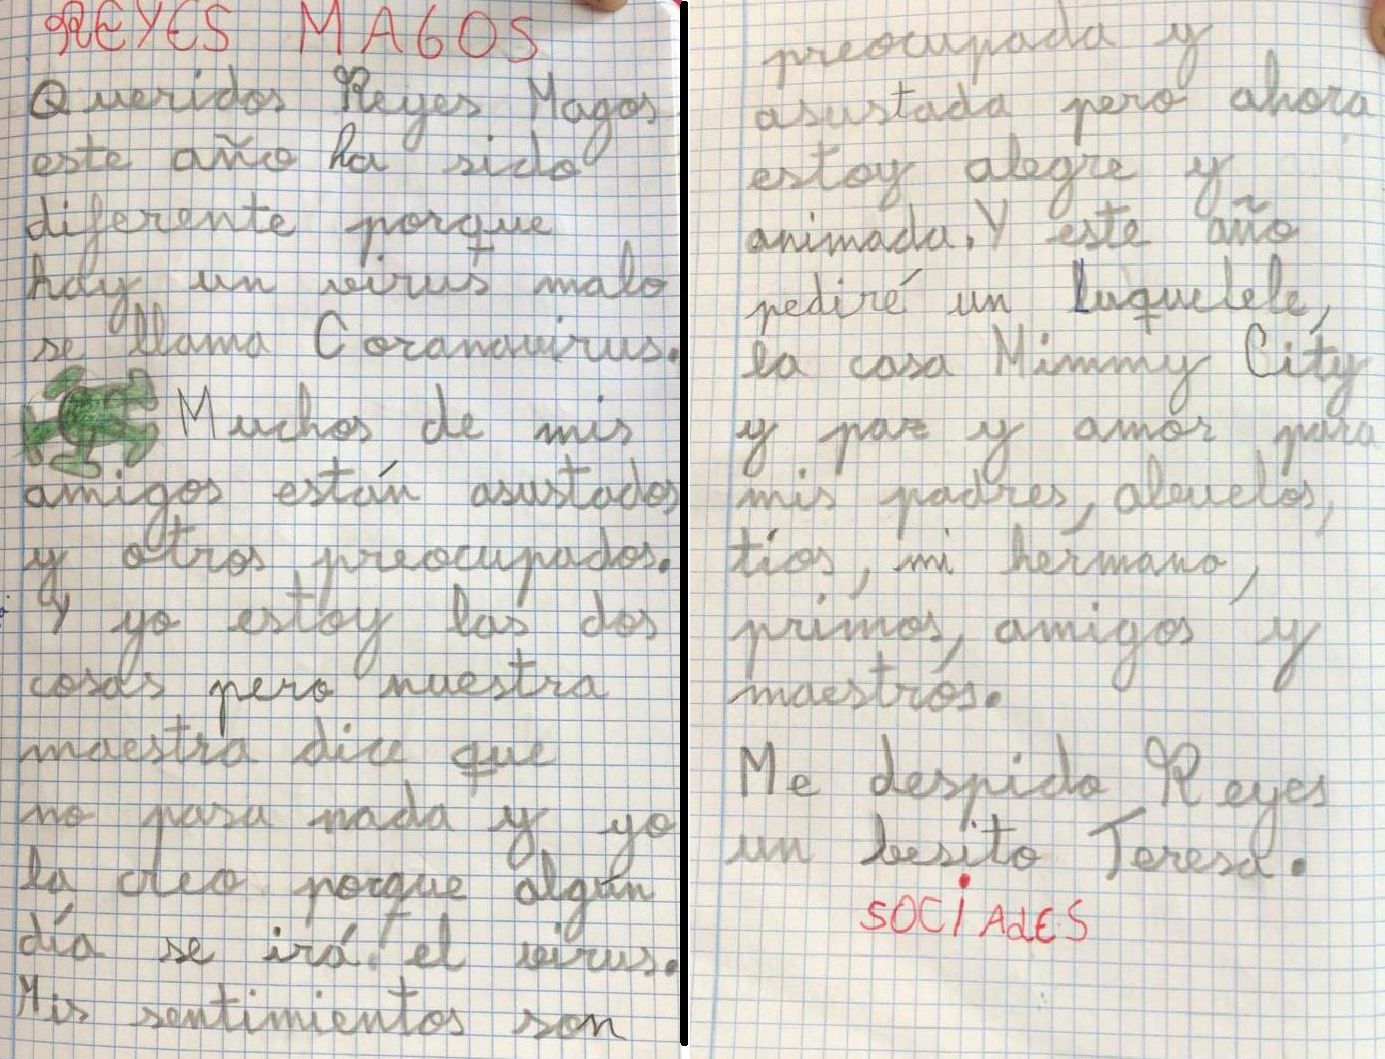 REYES MAGOS
Queridos Reyes Magos
este año ha sido
diferente porque
hay un virus malo
se llama Coranavirus.
Muchos de mis
amigos están asustados
y otros preocupados.
Y yo estoy las dos
cosas pero nuestra
maestra dice que
no pasa nada y yo
la creo porque algún
día se irá el virus.
Mis sentimientos son
preocupada y
asustada pero ahora
estoy alegre y
animada. Y este año
pediré un luquelele,
la casa Mimmy City
y paz y amor para
mis padres, abuelos,
tíos, mi hermano,
primos, amigos y
maestros.
Me despido Reyes
un besito Teresa.
SOCIALES